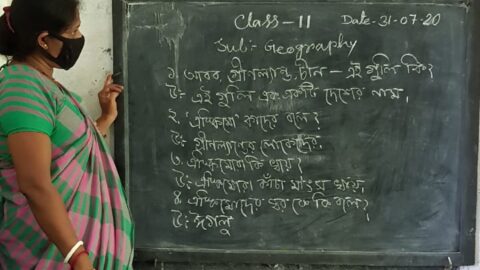 Class - II Date - 31-07-20
Sub:- Geography
১. আরব, গ্রীনল্যান্ড, চীন – এই গুলি কি?
উ:- এই গুলি এক একটি দেশের নাম,
২. 'এস্কিমো' কাদের বলে?
উ: গ্রীনল্যান্ডের লোকেদের,
৩. এস্কিমোরা কি খায়?
উ: এস্কিমোরা কাঁচা মাংস খায়,
৪. এস্কিমোদের ঘর কে কি বলে?
উ: ঈগলু